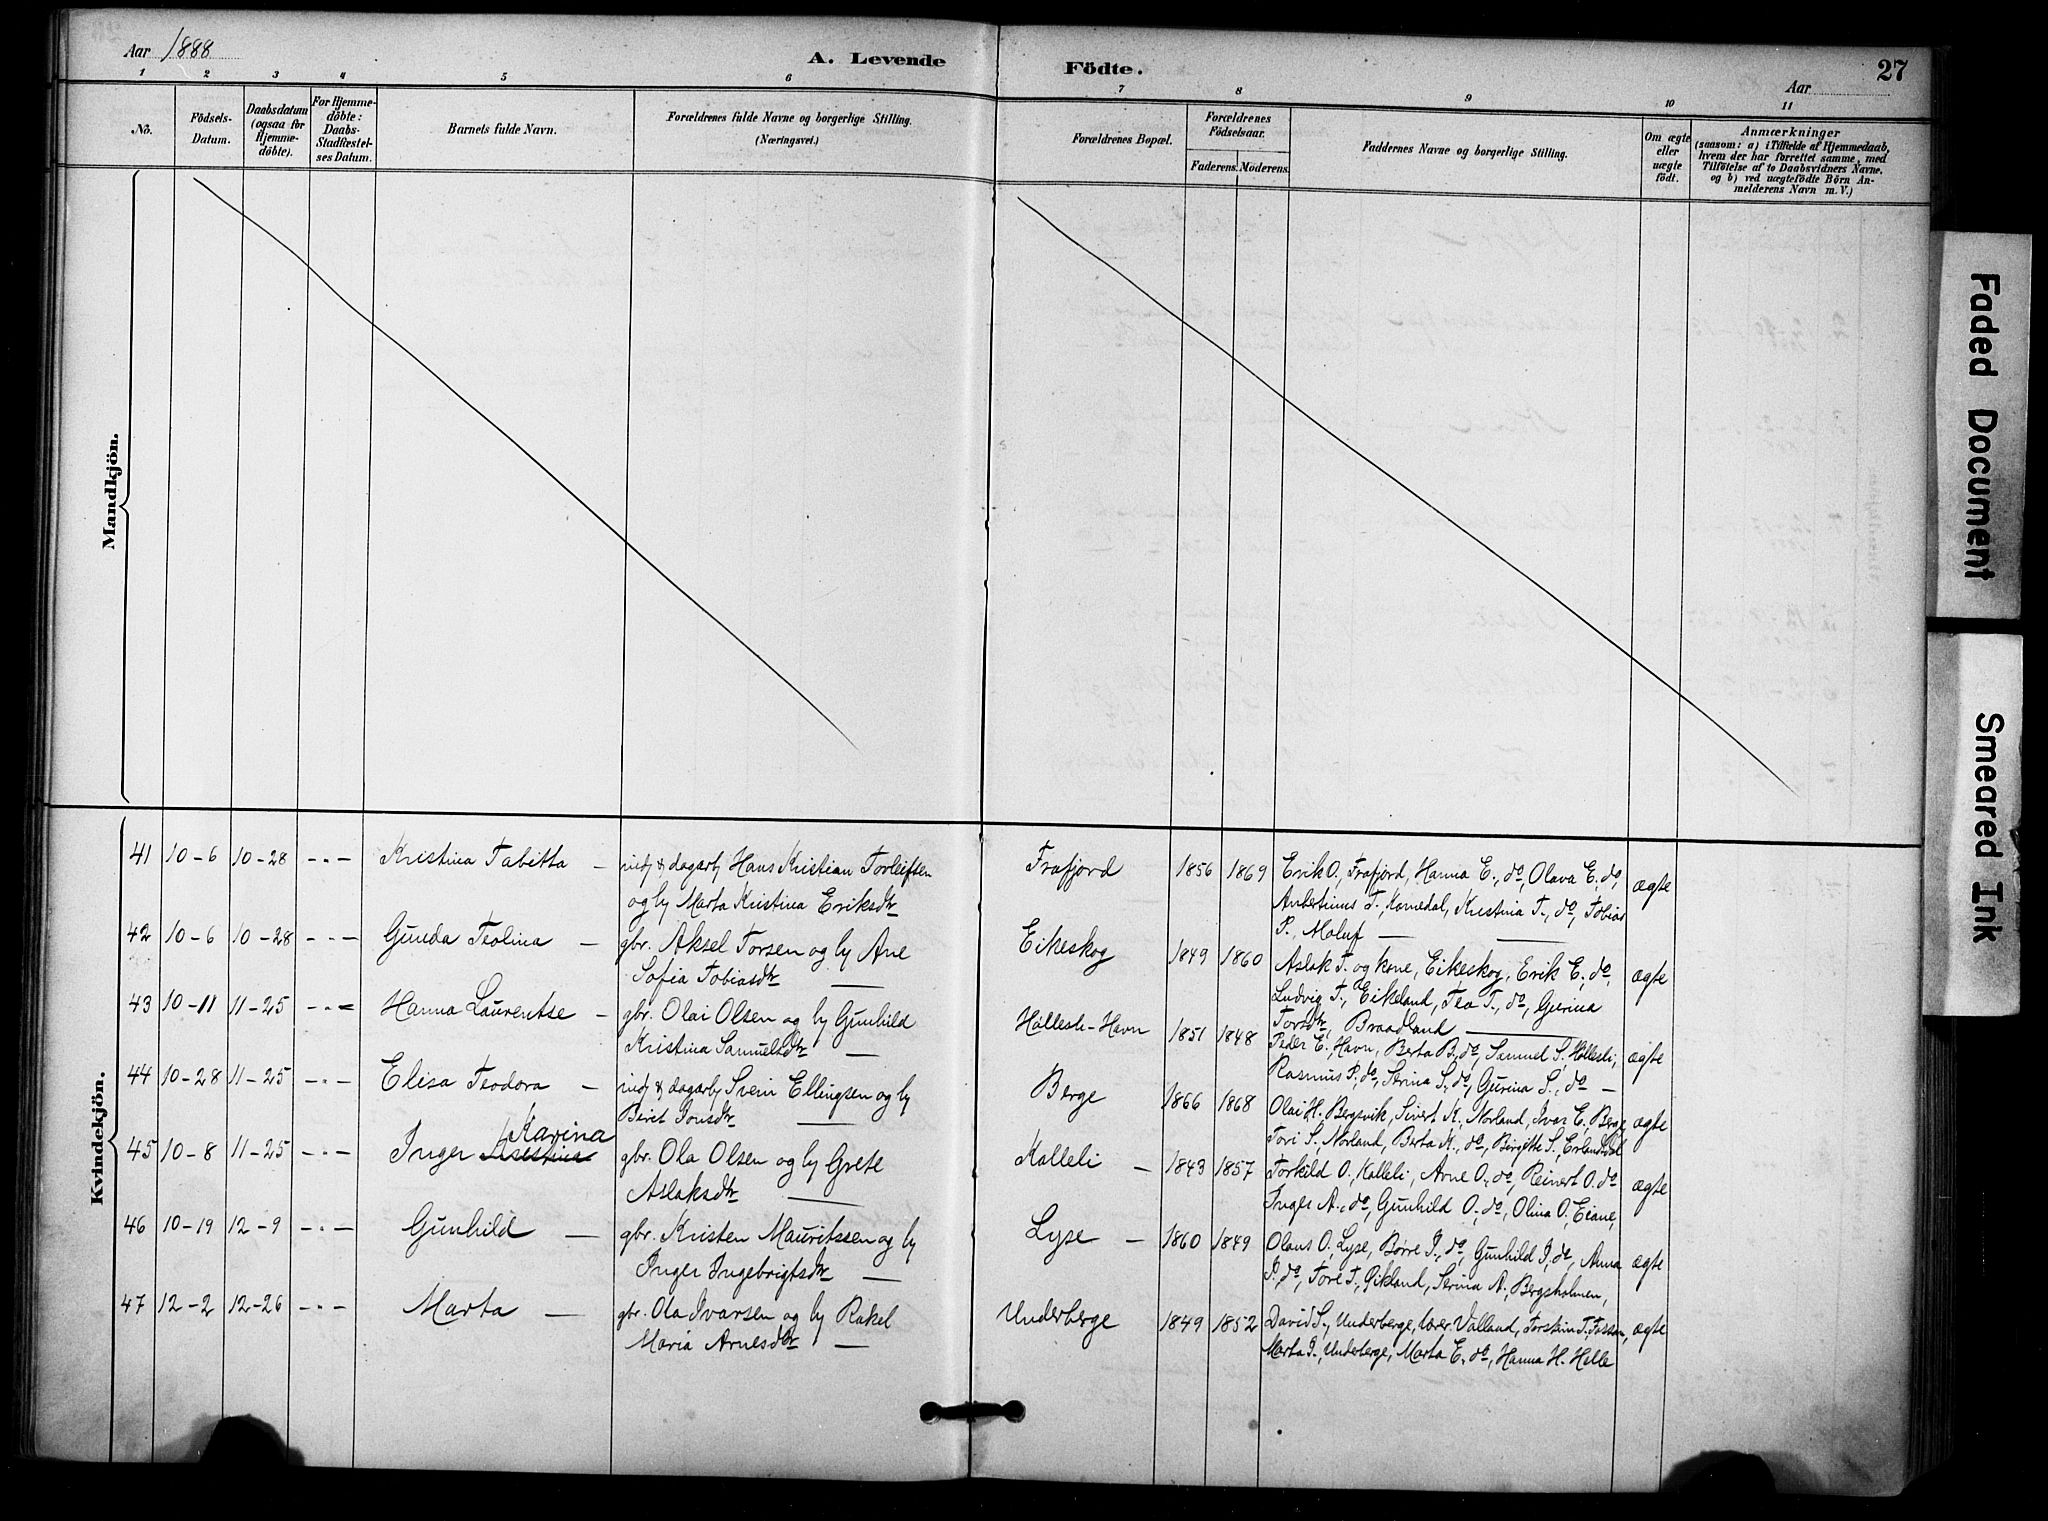 Aar 1888
A. Levende Födte.
27
Aar
1 2 3 4 5 6 7 8 9 10 11
No.
Födsels-Datum.
Daabsdatum (ogsaa for Hjemme-döbte).
For Hjemme-döbte: Daabs-Stadfæstel-ses Datum.
Barnets fulde Navn.
Forældrenes fulde Navne og borgerlige Stilling.
(Næringsvei.)
Forældrenes Bopæl.
Forældrenes Födselsaar.
Faderens. Moderens.
Faddernes Navne og borgerlige Stilling.
Om ægte eller uægte födt.
Anmærkninger
(saasom: a) i Tilfælde af Hjemmedaab,
hvem der har forrettet samme, med
Tilföielse af to Daabsvidners Navne.
og b) ved uægtefödte Börn An-
melderens Navn m. V.)
Mandkjön.
Kvindekjön.
41 10-6 10-28 - - - Kristina Tabitta - indj & dagarb Hans Kristian Torleifsen
og hy Marta Kristina Eriksdtr
Frafjord 1856 1869 Erik O., Frafjord, Hanna E., do, Olava E., do,
Anbertinus T., Komedal, Kristina T., do, Tobias
P., Maluf
ægte
42 10-6 10-28 - - - Gunda Teolina - gbr. Aksel Torsen og hy Ane
Sofia Tobiasdtr
Eikeskog 1849 1860 Aslak T. og kone, Eikeskog, Erik E., do,
Ludvig T., Eikeland, Tea T., do, Gurina
Torsdtr, Braadland
ægte
43 10-11 11-25 - - - Hanna Laurentse - gbr. Olai Olsen og hy Gunhild
Kristina Samuelsdtr
Hallesli-Havn 1851 1848 Peder E., Havn, Berta B., do, Samuel S., Hallesli,
Rasmus P., do, Serina S., do, Gurina S., do -
ægte
44 10-28 11-25 - - - Elisa Teodora - indj & dagarb Svein Ellingsen og hy
Berit Jonsdtr
Berge 1866 1868 Olai H. Bergsvik, Sivert K., Norland, Ivar E., Berge
Tori S., Norland, Berta K., do, Birgitte S., Erlandsdal
ægte
Karina
45 10-8 11-25 - - - Inger Kristina gbr. Ola Olsen og hy Grete
Aslaksdtr
Kalleli - 1843 1857 Torkild O., Kalleli, Arne O., do, Reinert O. do
Inger A., do, Gunhild O., do, Olina O., Eiane,
ægte
46 10-19 12-9 - - - Gunhild - gbr. Kristen Mauritssen og hy
Inger Ingebrigtsdtr
Lyse - 1860 1849 Olaus O., Lyse, Børre I., do, Gunhild I., do, Anna
P., do, Tore T., Eikland, Serina A., Bergsholmen,
ægte
47 12-2 12-26 - - - Marta - gbr. Ola Ivarsen og hy Rakel
Maria Arnesdtr
Underberge 1849 1852 David S., Underberge, lærer Valland, Torstein T., Fossan,
Marta I., Underberge, Marta E., do, Hanna H. Helle
ægte
Faded Document
Smeared Ink